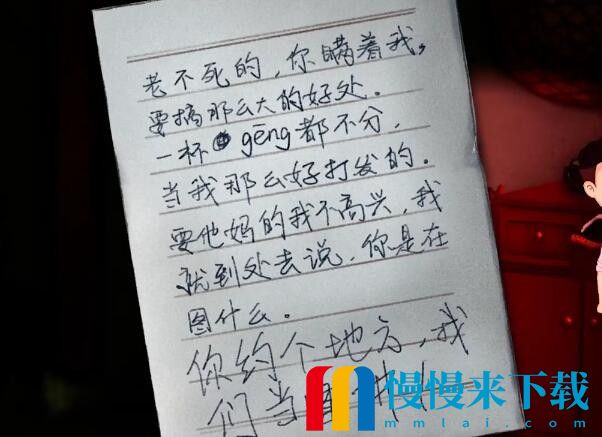 老不死的，你瞒着我，
要搞那么大的好处。
一杯 gēng都不分，
当我那么好打发的。
要他妈的我不高兴，我
就到处去说，你是在
图什么。
你约个地方，我
们当
慢慢来下载
mmlai.com